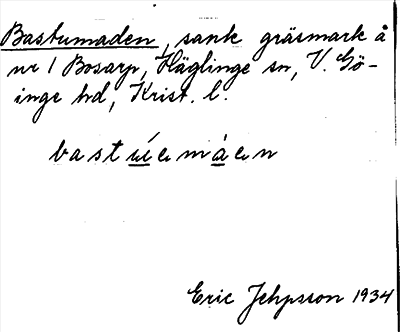 Bastumaden, sank gräsmark å
nr 1 Bosarp, Häglinge sn, V. Gö-
inge hd, Krist. l.
Eric Jehpsson 1934